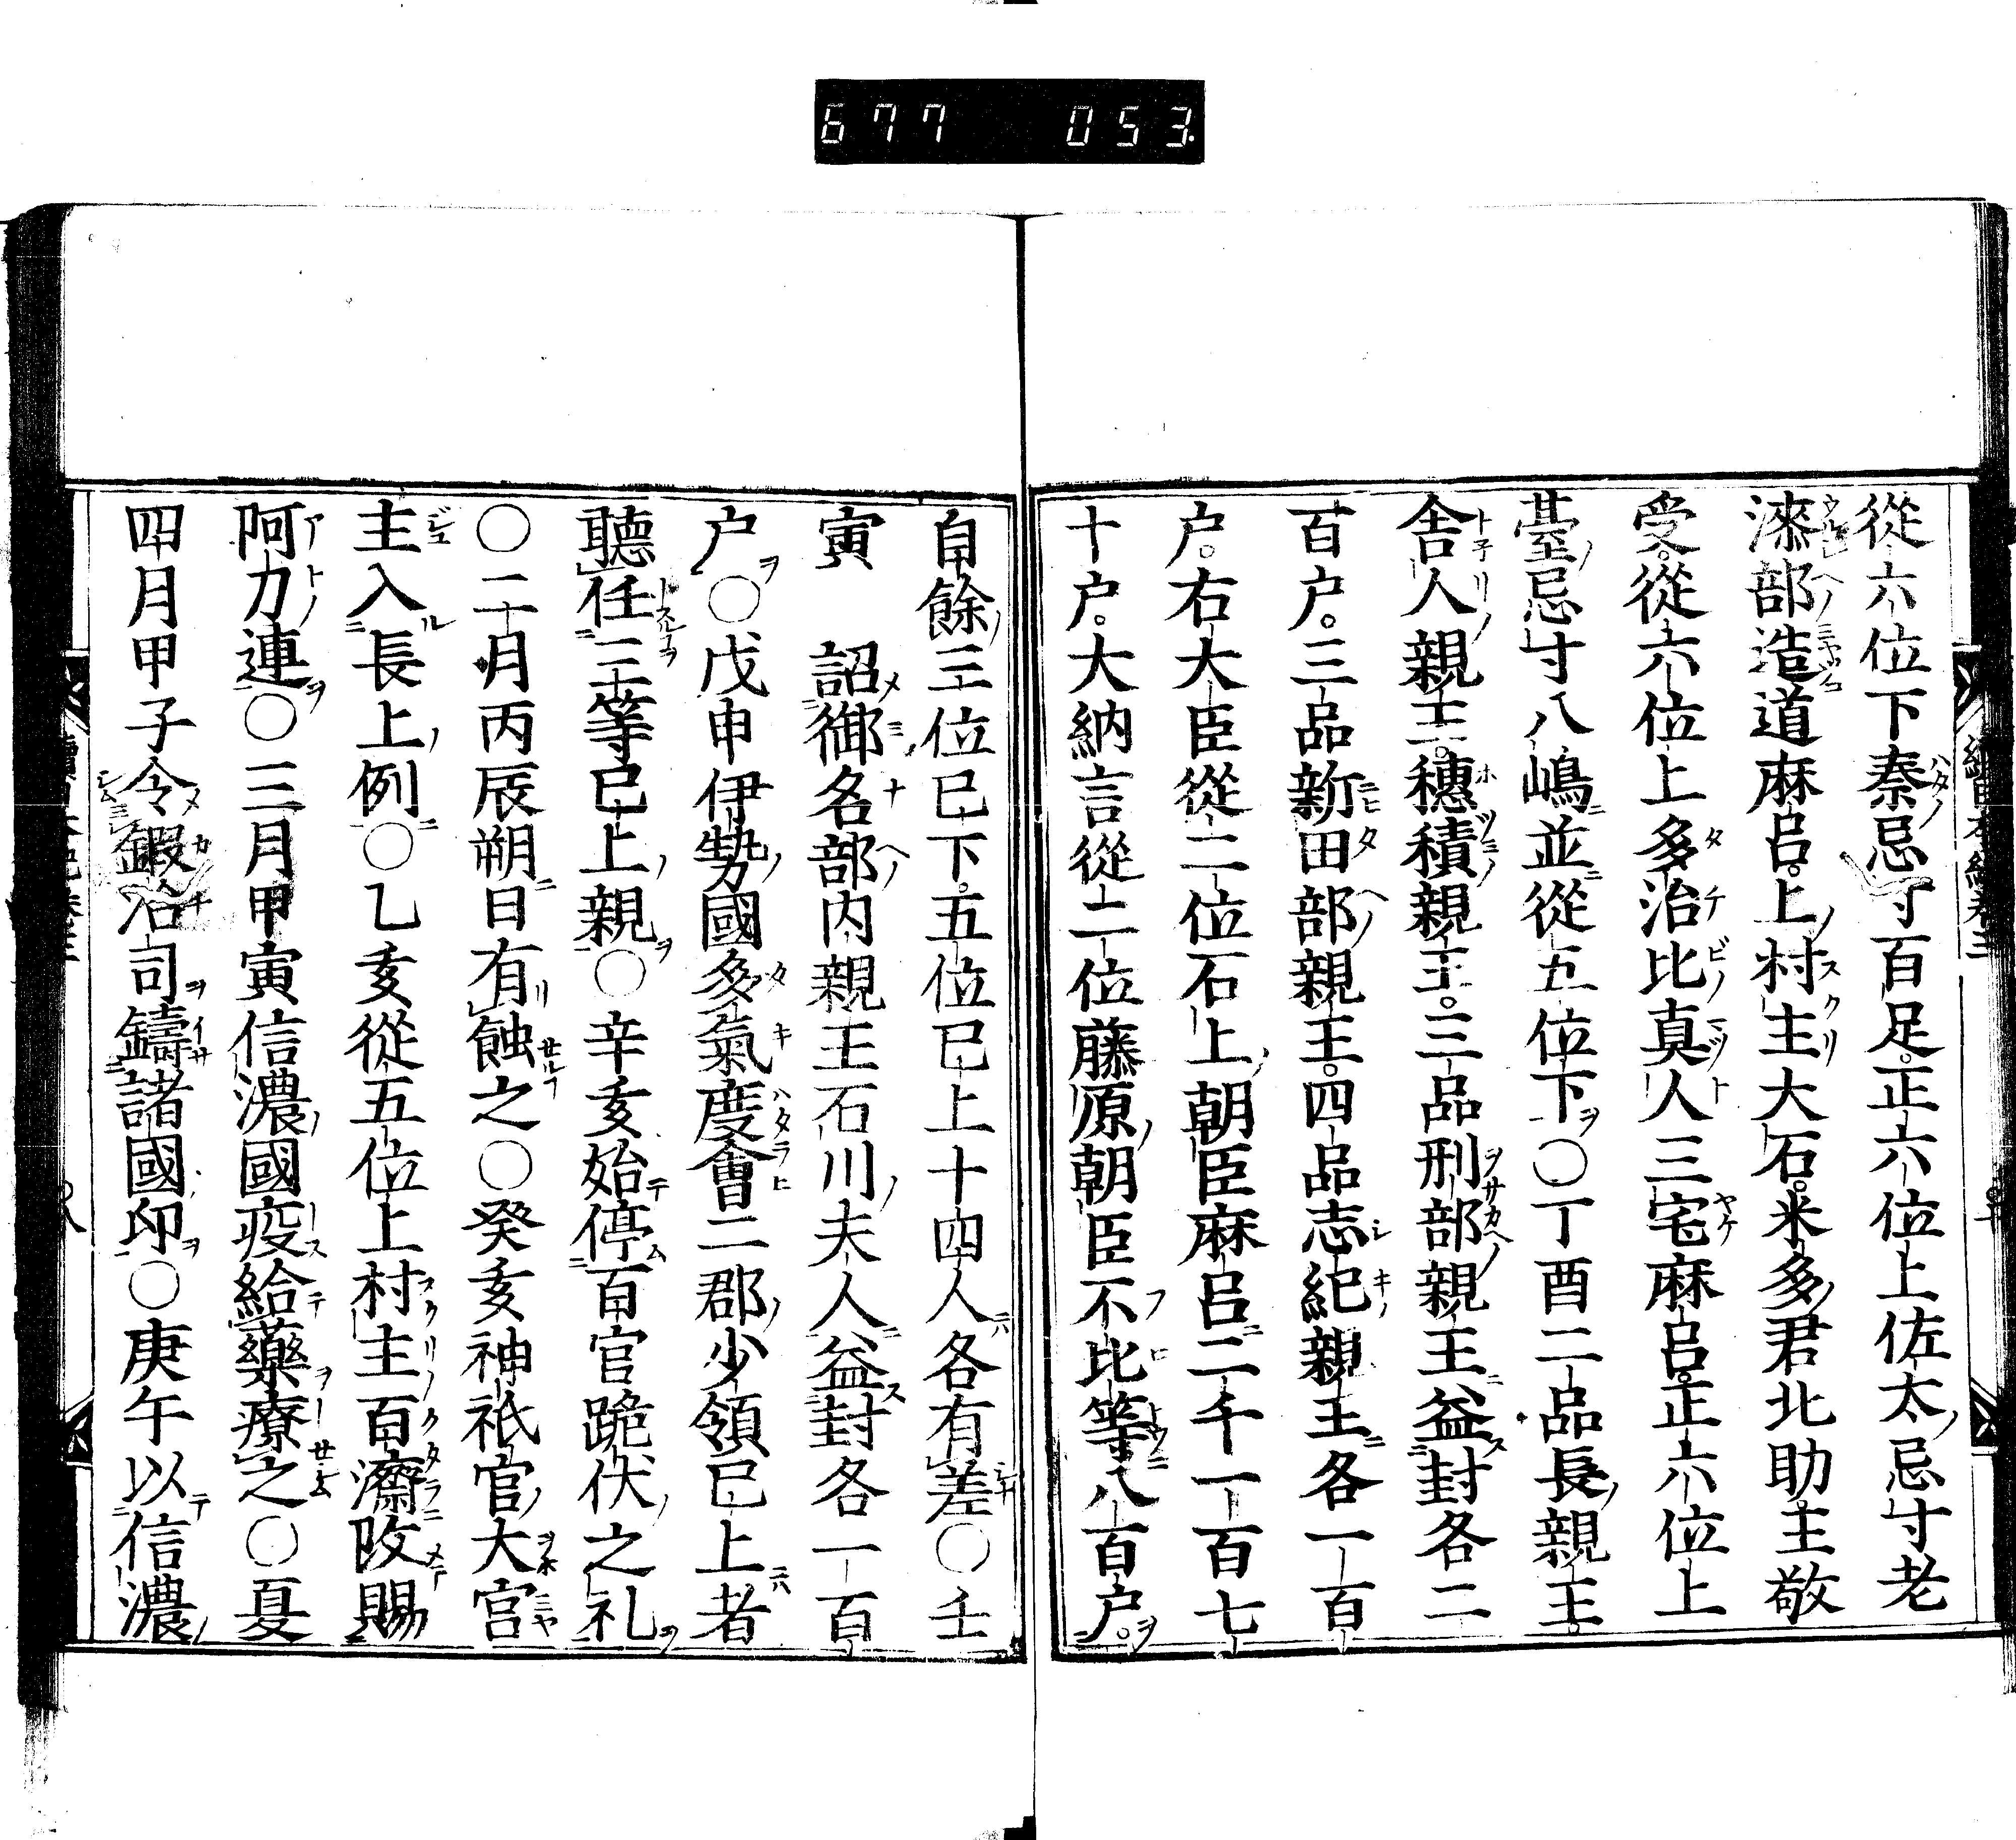 677 053
從六位下秦忌寸百足。正六位上佐太忌寸老
漆部造道麻呂。上村主大石。米多君北助。主敬
受。從六位上多治比真人三宅麻呂。正六位上
臺忌寸八嶋並從五位下〇丁酉二品長親王。
舍人親王。穗積親王。三品刑部親王益封各二
百户。三品新田部親王。四品志紀親王各一百
户。右大臣從二位石上朝臣麻呂二千一百七
十户。大納言從二位藤原朝臣不比等八百户。
自餘三位已下。五位已上十四人各有差〇壬
寅 詔御名部内親王石川夫人益封各一百
户〇戊申伊勢國多氣度會二郡少領已上者
聽任三等已上親〇辛亥始停百官跪伏之礼
〇二月丙辰朔日有蝕之〇癸亥神祇官大宮
主入長上例〇乙亥從五位上村主百濟改賜
阿刀連〇三月甲寅信濃國疫給藥療之〇夏
四月甲子令鍜冶司鑄諸國印〇庚午以信濃